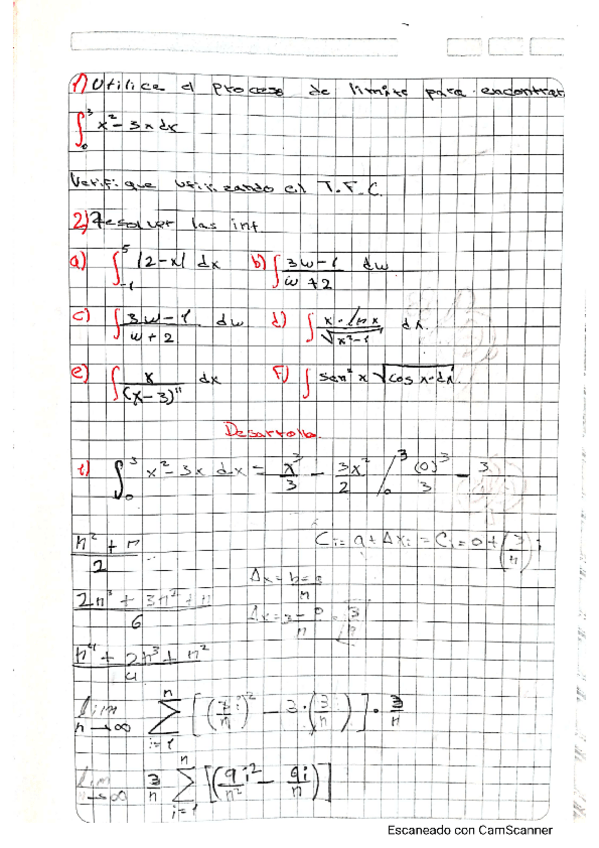 1) Utilice el proceso de limite para encontrar
∫₀³ x² - 3x dx
Verifique utilizando el T.F.C.
2) Resolver las int.
a) ∫₋₁⁵ |2-x| dx b) ∫ (3w-1)/(w+2) dw
c) ∫ (3w-1)/(w+2) dw d) ∫ (x·ln x)/√(x²-1) dx.
e) ∫ x/(x-3)¹¹ dx F) ∫ sen³x √(cos x·dx).
Desarrollo.
1) ∫₀³ x² - 3x dx = x³/3 - 3x²/2 /₀³ (0)³/3 - 3
(n² + n)/2 Ci = a + Δxi = Ci = 0 + (3/n) i
(2n³ + 3n² + n)/6 Δx = b - a / n
Δx = 3 - 0 / n = 3/n
(n⁴ + 2n³ + n²)/4
lim n→∞ Σ i=1 n [(3i/n)² - 3·(3/n)] · 3/n
lim n→∞ 3/n Σ i=1 n [(9i²/n² - 9i/n)]
Escaneado con CamScanner